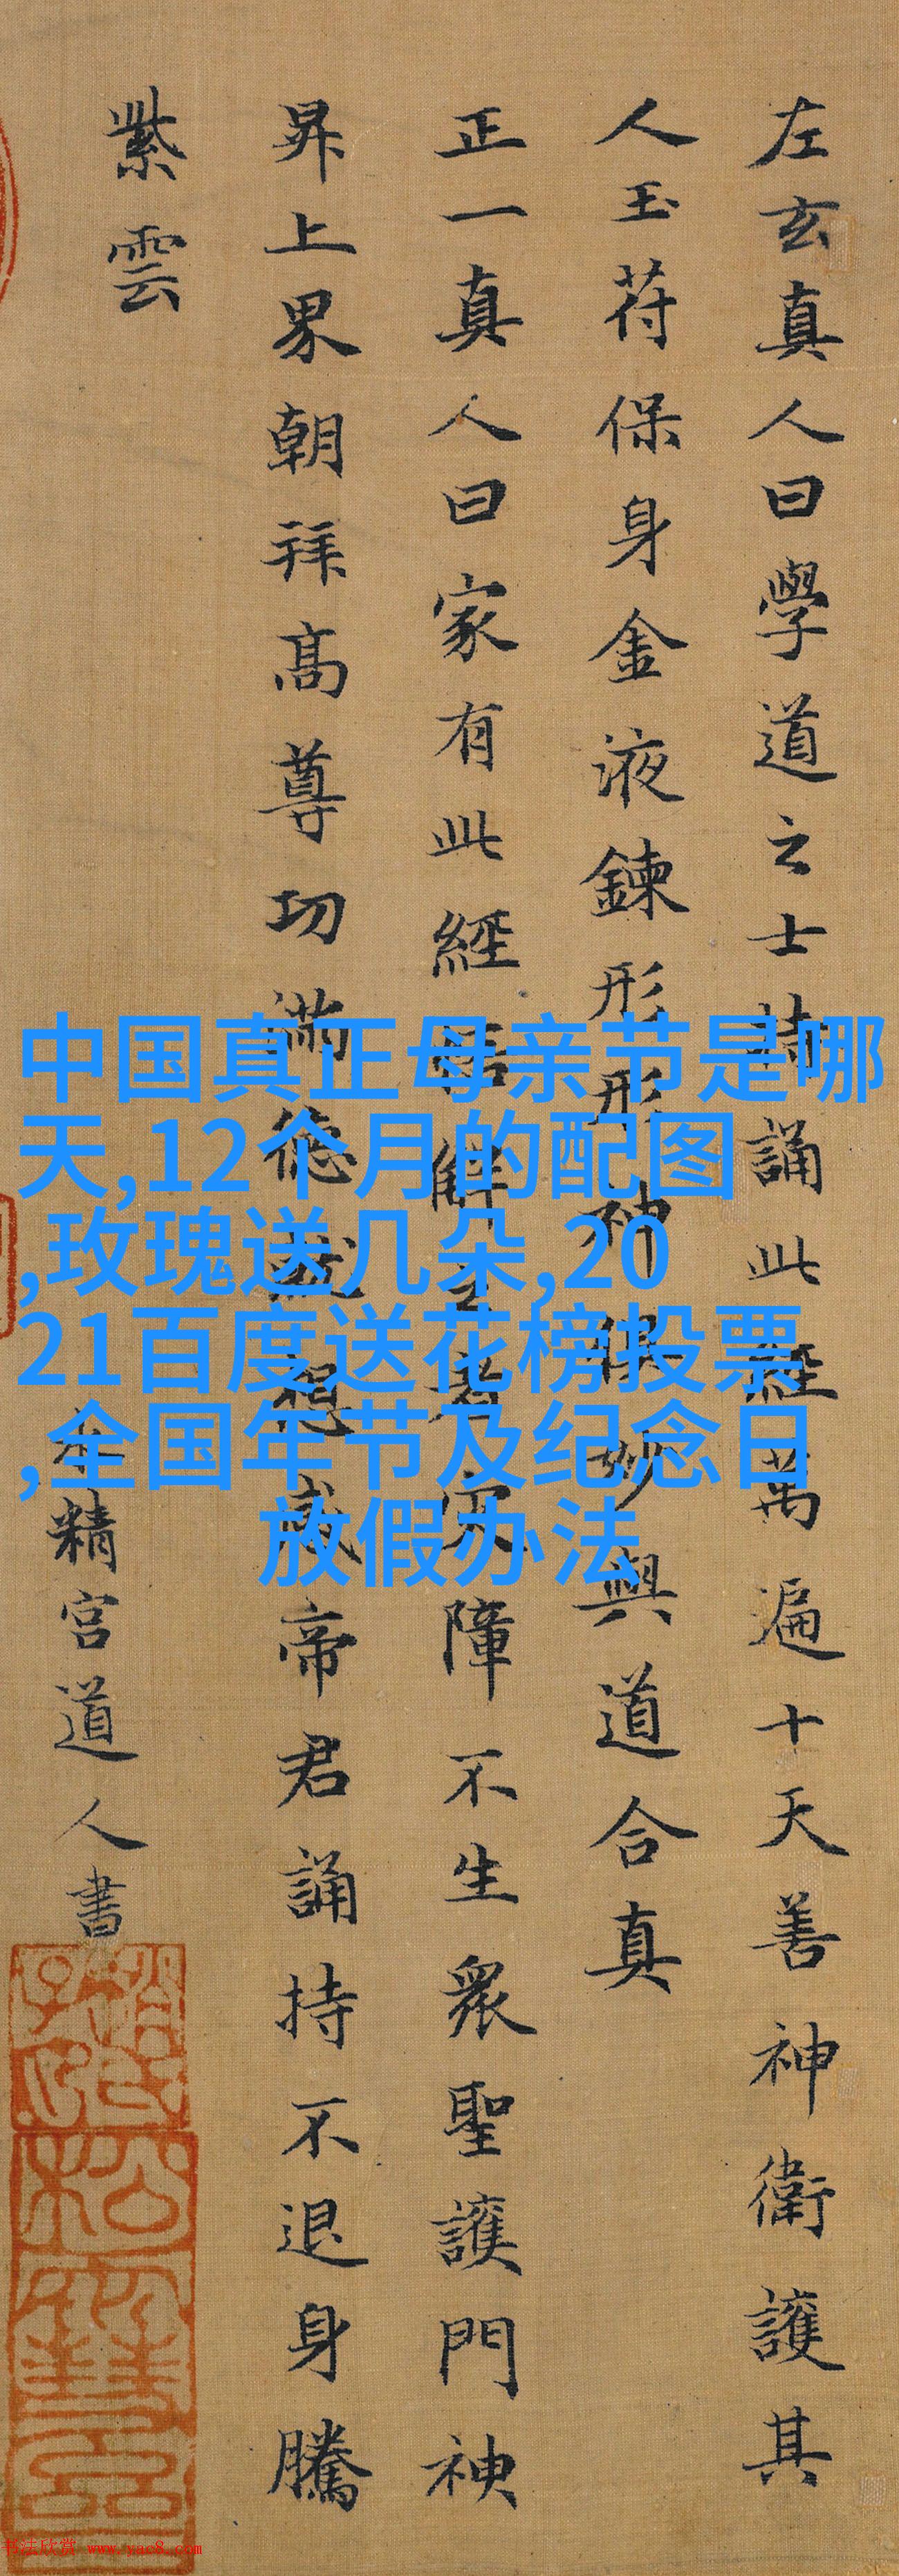 左玄真人曰學道之士持誦此經萬遍十天善神衛護其
人玉苻保身金液鍊形形神俱妙與道合真
正一真人曰家有此經悟解之者灾障不生衆聖護門神
昇上界朝拜髙尊功滿德就想感帝君誦持不退身騰
紫雲
水精宫道人書
中国真正母亲节是哪
天,12个月的配图
,玫瑰送几朵,20
21百度送花榜投票
,全国年节及纪念日
放假办法
书法欣赏 www.yac8.com